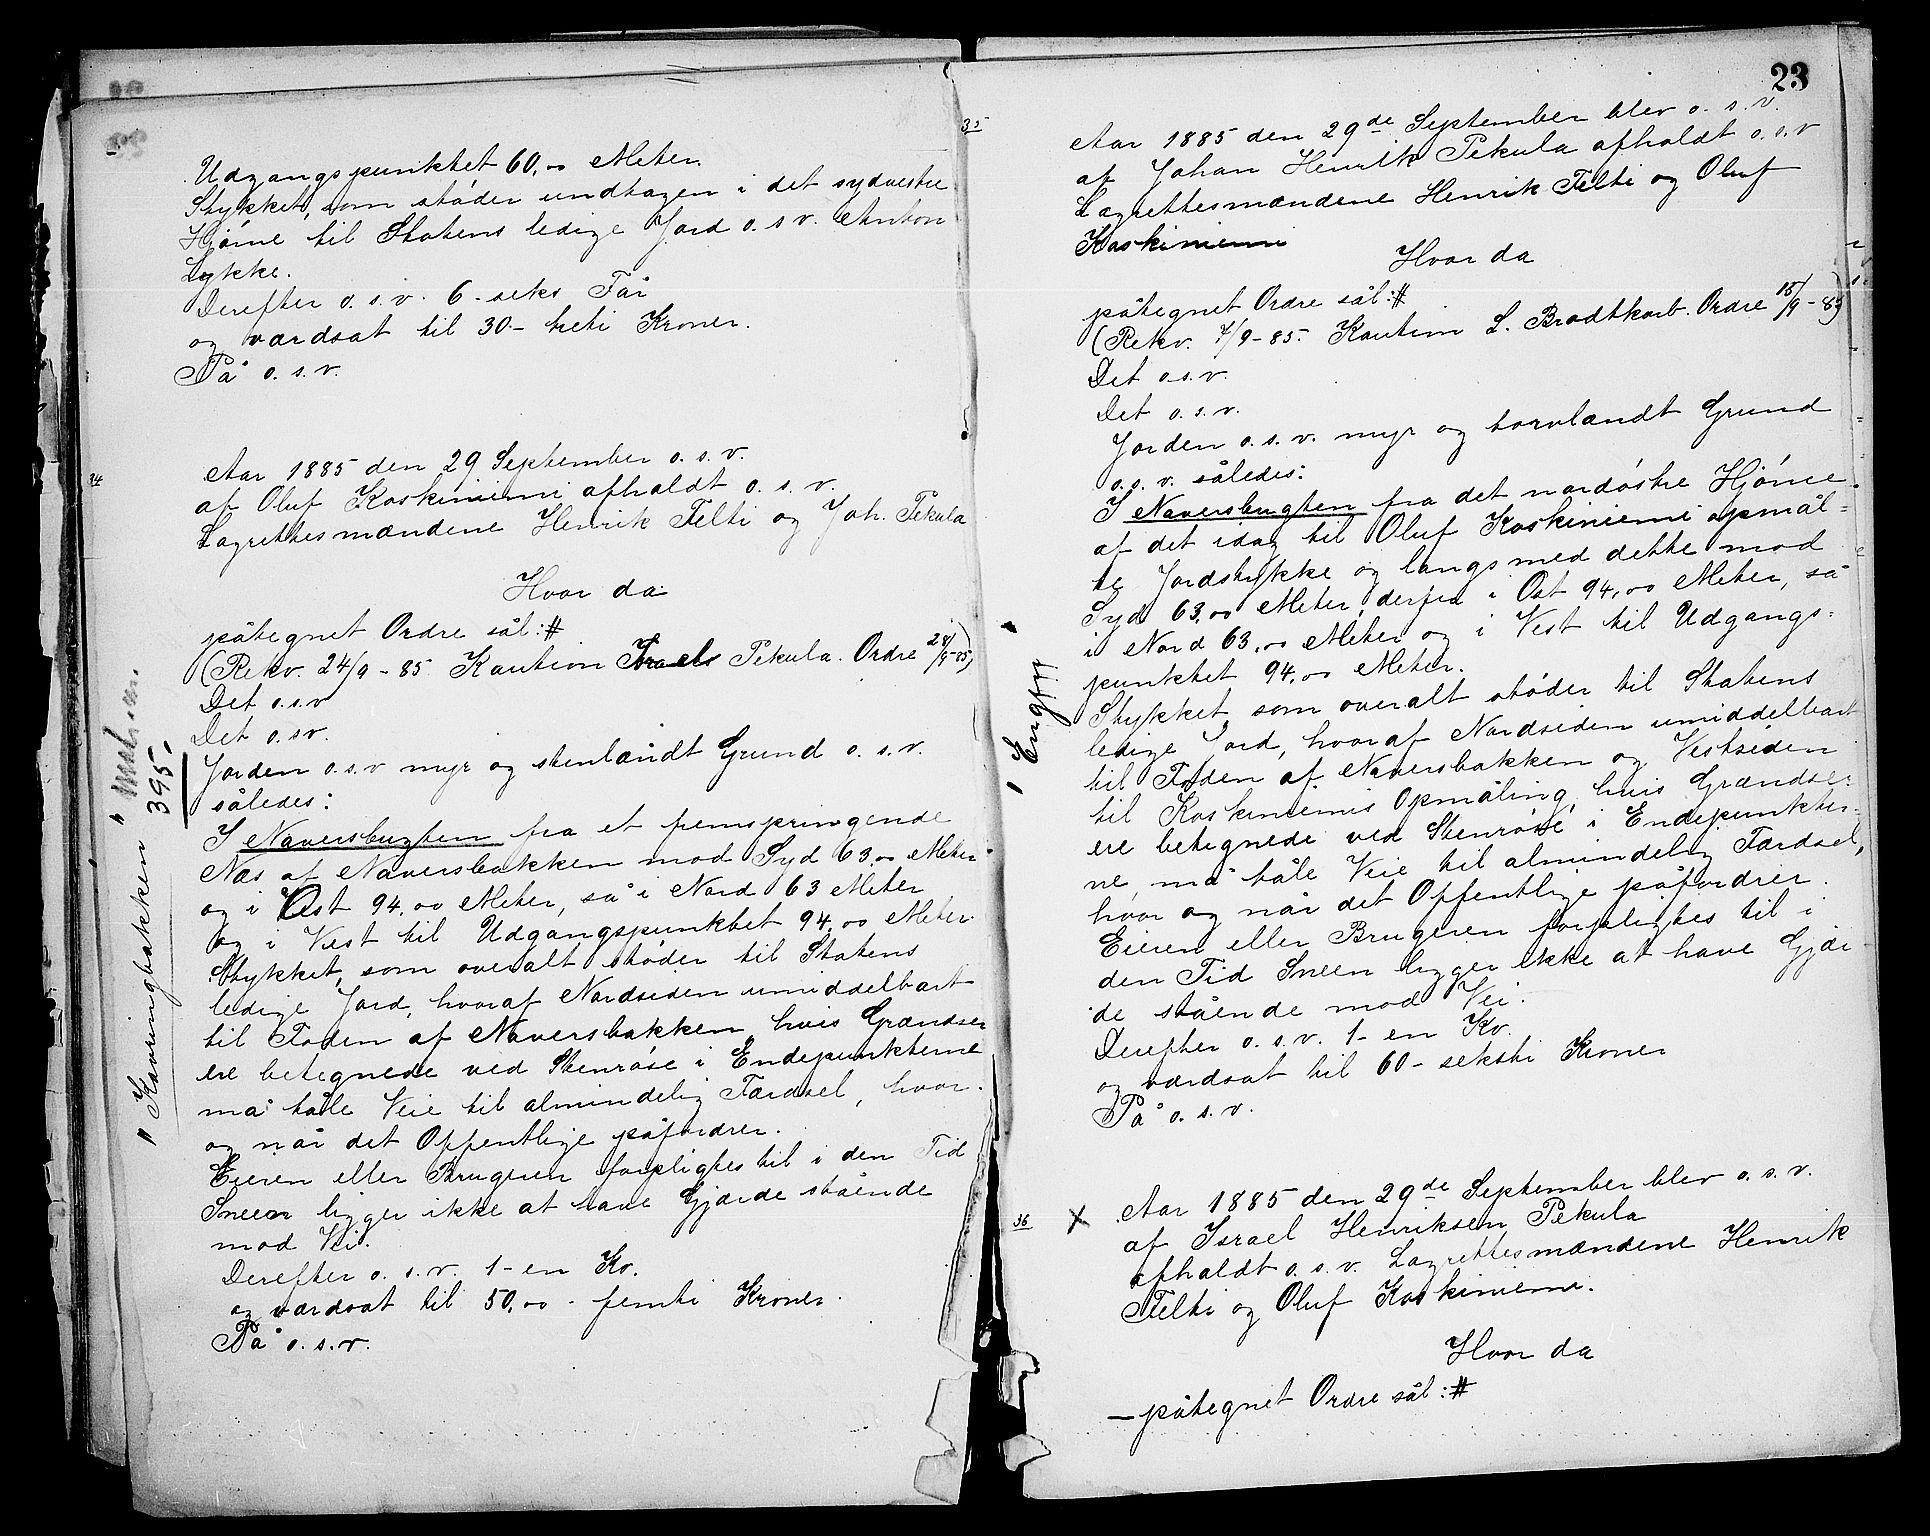 Udgangspunktet 60,00 Meter.
Stykket, som støder undtagen i det sydvestre
Hjørne til Statens ledige Jord o.s.v. Anton
Lykke.
Derefter o.s.v. 6 - seks Får
og værdsat til 30 - treti Kroner.
På o.s.v.
34
Aar 1885 den 29 September o.s.v.
af Oluf Koskiniemi afholdt o.s.v.
Lagrettesmændene Henrik Felti og Joh. Pekula
Hvor da
påtegnet Ordre sål:#
(Rekv. 24/9 - 85 Kaution Israels Pekula. Ordre 24/9-85)
Det o.s.v
Det o.s.v.
Jorden o.s.v myr og stenlændt Grund o.s.v.
således:
I Naversbugten fra et fremspringende
Næs af Naversbakken mod Syd 63,00 Meter
og i Øst 94,00 Meter, så i Nord 63 Meter
og i Vest til Udgangspunktet 94,00 Meter.
Stykket, som overalt støder til Statens
ledige Jord, hvoraf Nordsiden umiddelbart
til Foden af Naversbakken, hvis Grændser
ere betegnede ved Stenrøse i Endepunkterne
må tåle Veie til almindelig Færdsel, hvor
og når det Offentlige påfordrer.
Eieren eller Brugeren forpligtes til i den Tid
Sneen ligger ikke at have Gjærde stående
mod Vei.
Derefter o.s.v. 1 - en Ko.
og værdsat til 50,00 - femti Kroner.
På o.s.v.
" Kavringbakken "
395.
23
35
Aar 1885 den 29de September blev o.s.v.
af Johan Henrik Pekula afholdt o.s.v
Lagrettesmændene Henrik Felti og Oluf
Koskiniemi
Hvor da
påtegnet Ordre sål:#
(Rekv. 7/9 - 85. Kaution L. Brodtkorb. Ordre 15/9 - 85)
Det o.s.v.
Det o.s.v.
Jorden o.s.v. myr og torvlændt Grund
o.s.v. således:
I Naversbugten fra det nordøstre Hjørne
af det idag til Oluf Koskiniemi opmål=
te Jordstykke og langs med dette mod
Syd 63,00 Meter, derfra i Øst 94,00 Meter, så
i Nord 63,00 Meter og i Vest til Udgangs=
punktet 94,00 Meter.
Stykket, som overalt støder til Statens
ledige Jord, hvoraf Nordsiden umiddelbart
til Foden af Naversbakken og Vestsiden
til Koskiniemis Opmåling, hvis Grændser
ere betegnede ved Stenrøse i Endepunkter-
ne, må tåle Veie til almindelig Færdsel,
hvor og når det Offentlige påfordrer.
Eieren eller Brugeren forpligtes til i
den Tid Sneen ligger ikke at have Gjær
de stående mod Vei.
Derefter o.s.v. 1 - en Ko.
og værdsat til 60 - seksti Kroner
På o.s.v.
36 X
Aar 1885 den 29de September blev o.s.v.
af Israel Henriksen Pekula
afholdt o.s.v. Lagrettesmændene Henrik
Felti og Oluf Koskiniemi.
Hvor da
— påtegnet Ordre sål:#